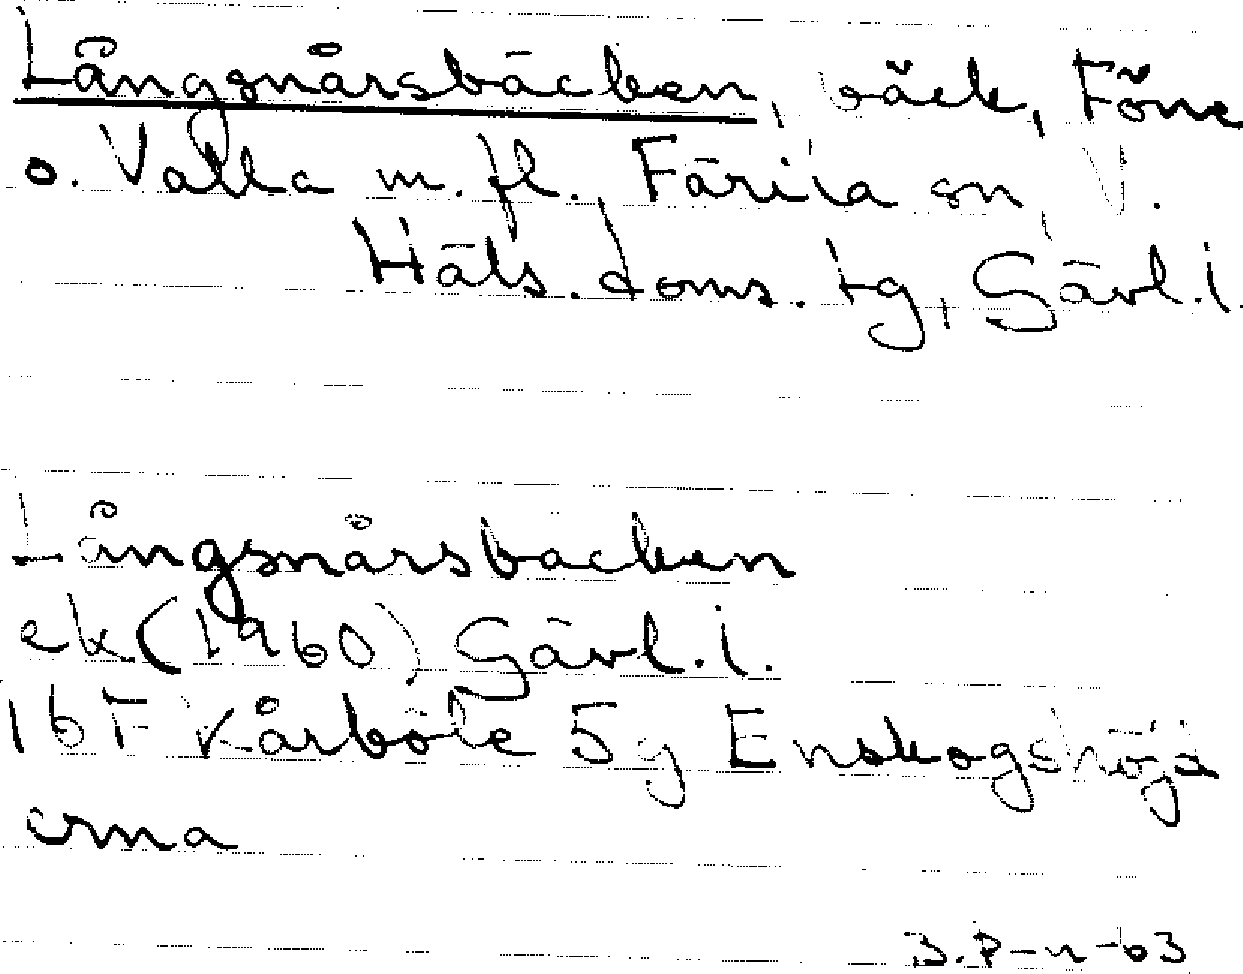 Långsnårsbäcken, bäck, Föne
o. Valla m.fl., Färila sn, V.
Häls. doms. tg, Gävl. l.
Långsnårsbäcken
ek (1960) Gävl. l.
16F Kårböle 5g Enskogshöjd
arna
B.P-n -63